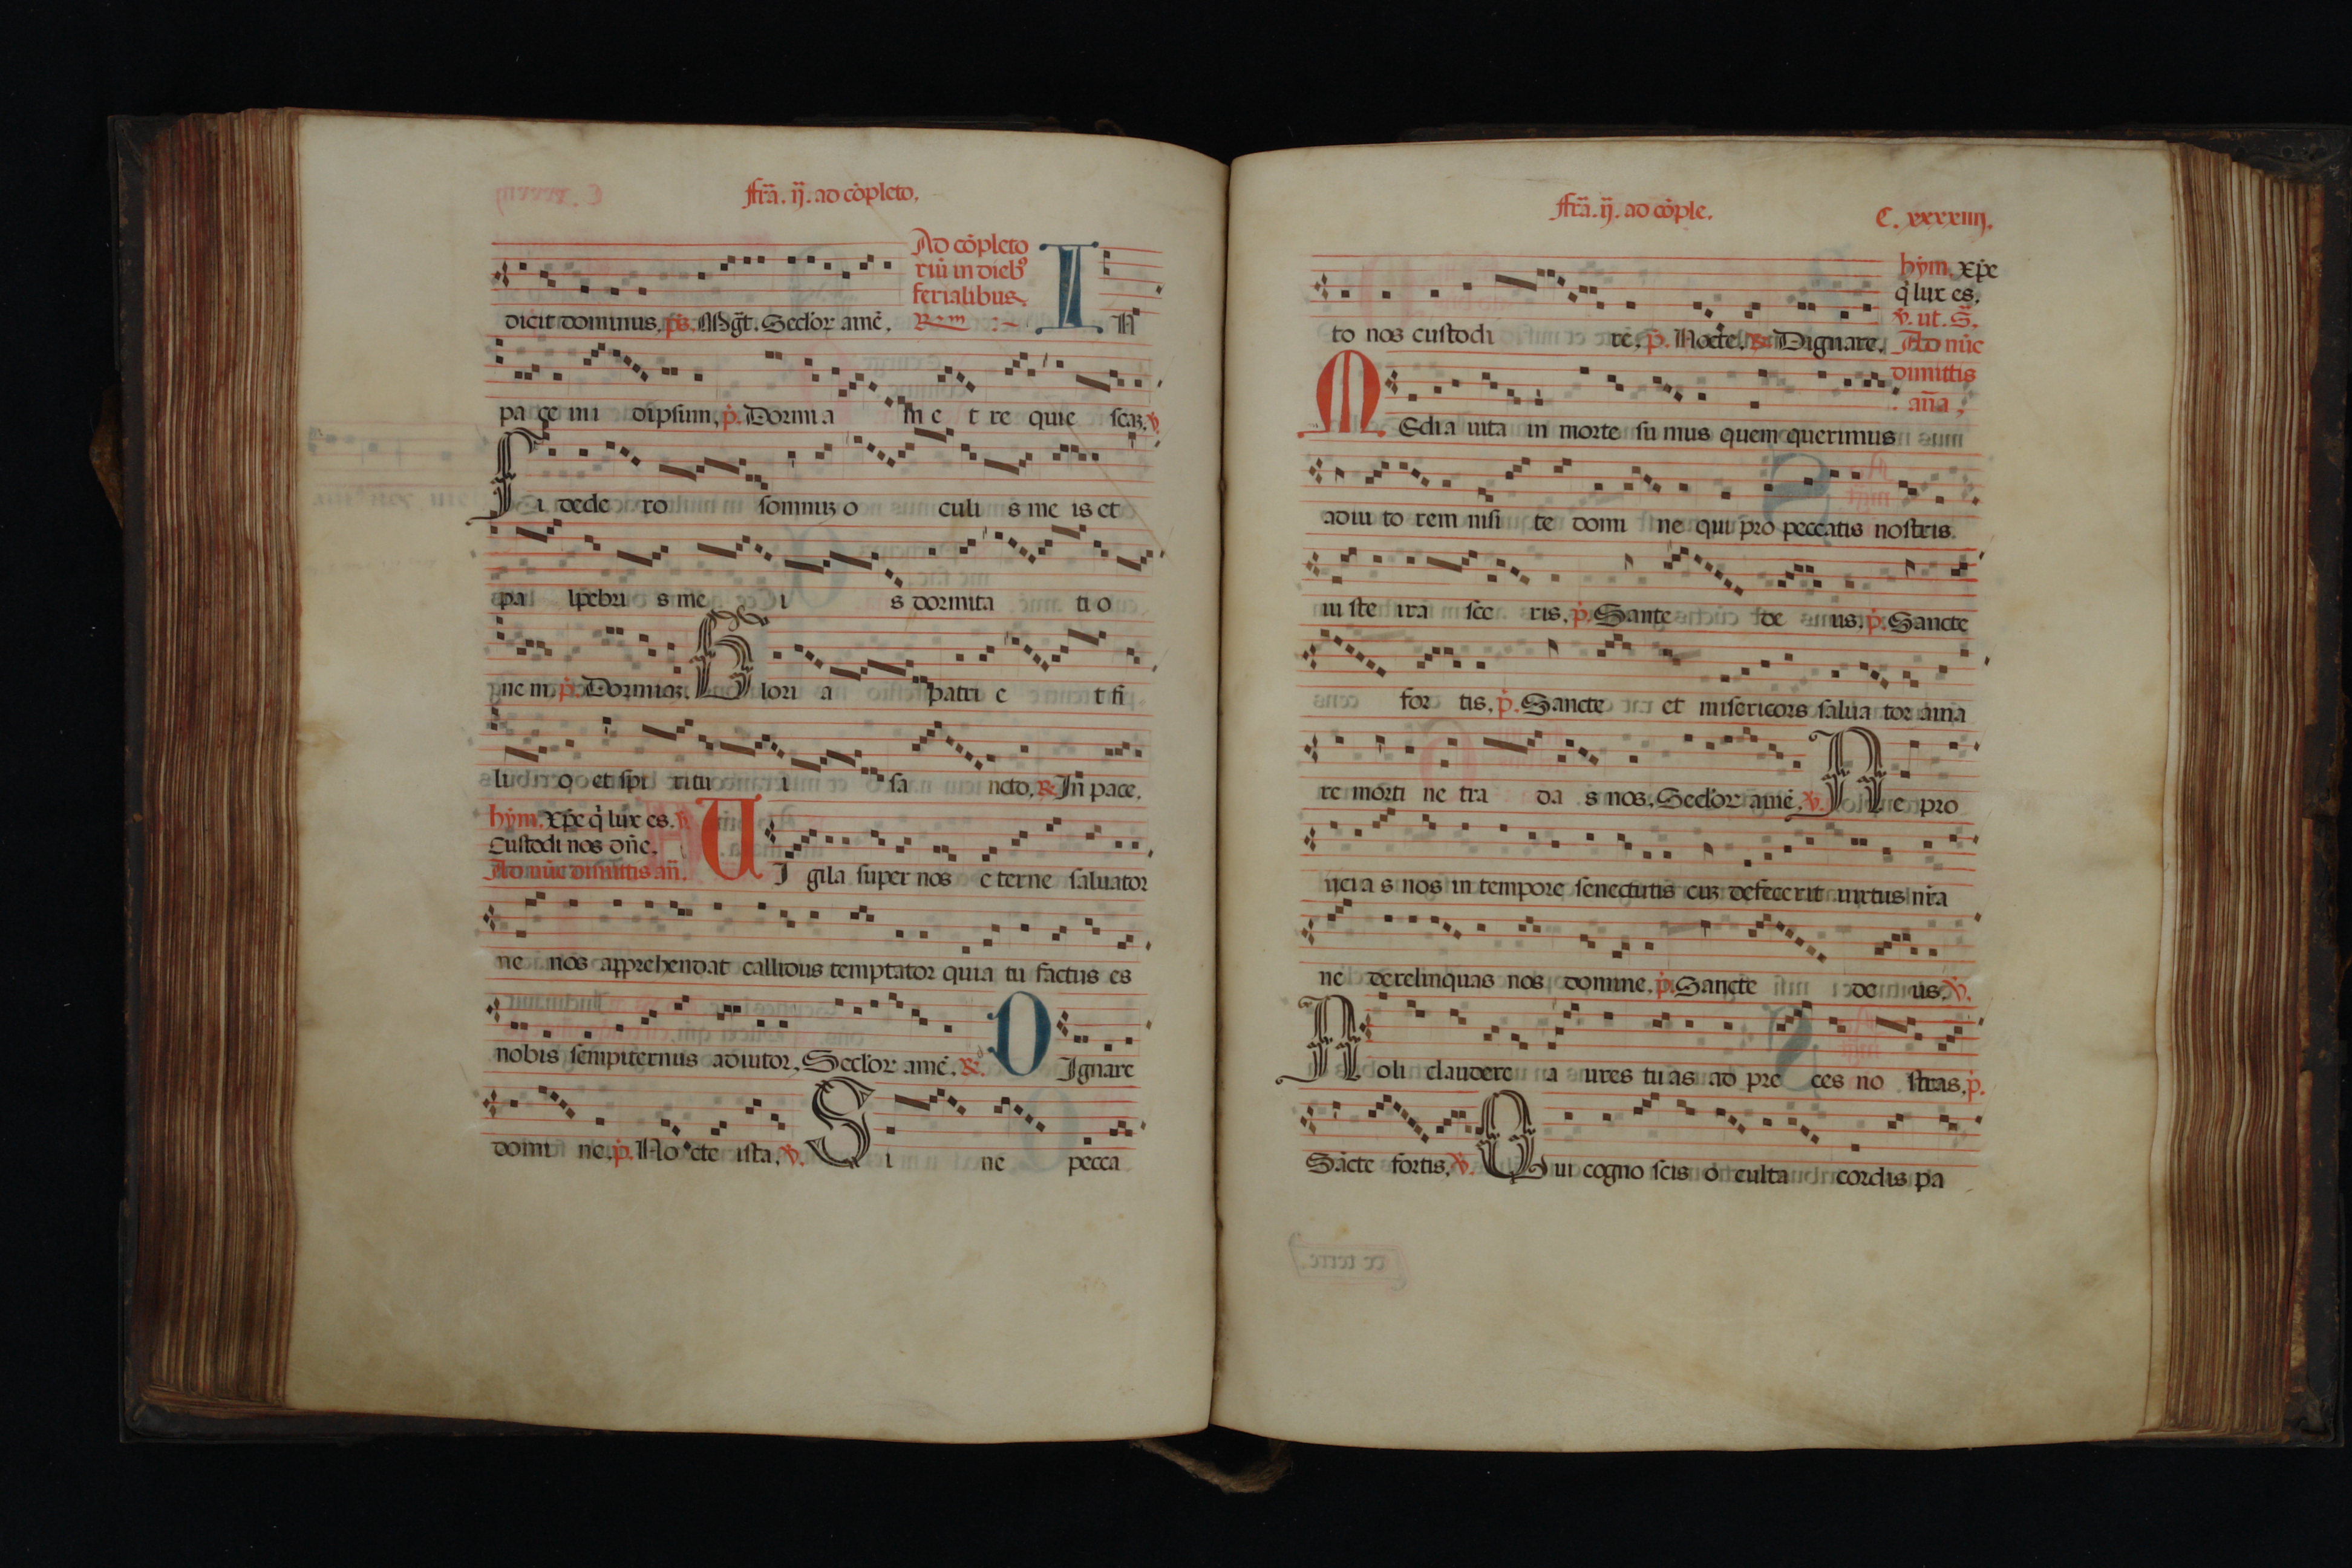 ffrã. ij. ad cõpleto.
Ad cõpleto
riũ in dieb9
ferialibus.
dicit dominus. ps. Mgt. Seclor amẽ. Rm I N
pa ce mi dipsum, p. Dormi a m e t re quie scaz. v.
S i dede ro somnuz o culi s me is et
pa lpebri s me i s dormita ti o
ne m. p. Dormiaz. G lori a patri e t fi
li o et spi ritu i sa ncto. R. In pace.
hym. xpe q lux es. v.
Custodi nos dñe.
Ad nũc dimittis añ. U I gila super nos e terne saluator
ne nos apprehendat callidus temptator quia tu factus es
nobis sempiternus adiutor. Seclor amẽ. R. D Ignare
domi ne. p. No cte ista. v. S i ne pecca
ffrã. ij. ad cõple. C. xxxxiiij.
hym. xpe
q lux es.
v. ut. S.
to nos custodi re. p. Nocte. R. Dignare. Ad nũc
dimittis
aña,
M Edia uita in morte su mus quem querimus
adiu to rem nisi te domi ne qui pro peccatis nostris
iu ste ira sce ris. p. Sante de us. p. Sancte
for tis. p. Sancte et misericors salua tor ama
re morti ne tra da s nos. Seclor amẽ. v. N e pro
ijcia s nos in tempore senectutis cuz defecerit uirtus nra
ne derelinquas nos domine. p. Sancte de us. v.
N oli claudere a ures tu as ad pre ces no stras. p.
Sãcte fortis. v. Q ui cogno scis o culta cordis pa